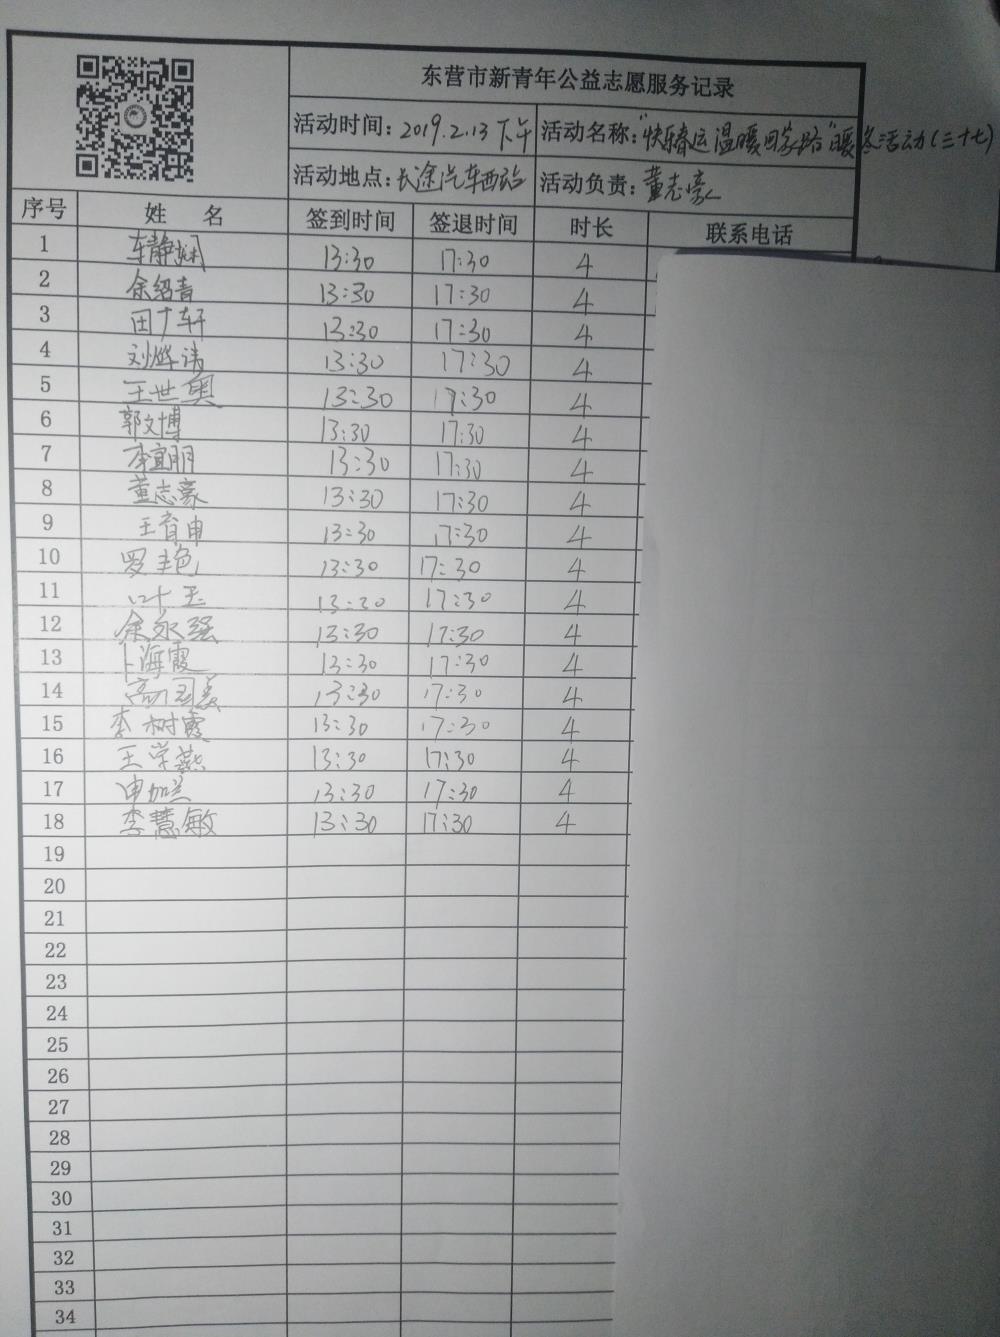 东营市新青年公益志愿服务记录
活动时间：2019.2.13下午 活动名称："快乐春运温暖回家路"暖冬活动(三十七)
活动地点：长途汽车西站 活动负责：董志豪
序号 姓 名 签到时间 签退时间 时长 联系电话
1 车静娴 13:30 17:30 4
2 余绍青 13:30 17:30 4
3 田广轩 13:30 17:30 4
4 刘烨 13:30 17:30 4
5 王世奥 13:30 17:30 4
6 郭文博 13:30 17:30 4
7 李宜朋 13:30 17:30 4
8 董志豪 13:30 17:30 4
9 王育申 13:30 17:30 4
10 罗丰色 13:30 17:30 4
11 叶玉 13:30 17:30 4
12 余永强 13:30 17:30 4
13 卜海霞 13:30 17:30 4
14 高 美 13:30 17:30 4
15 李树霞 13:30 17:30 4
16 王学燕 13:30 17:30 4
17 申加兰 13:30 17:30 4
18 李慧敏 13:30 17:30 4
19
20
21
22
23
24
25
26
27
28
29
30
31
32
33
34